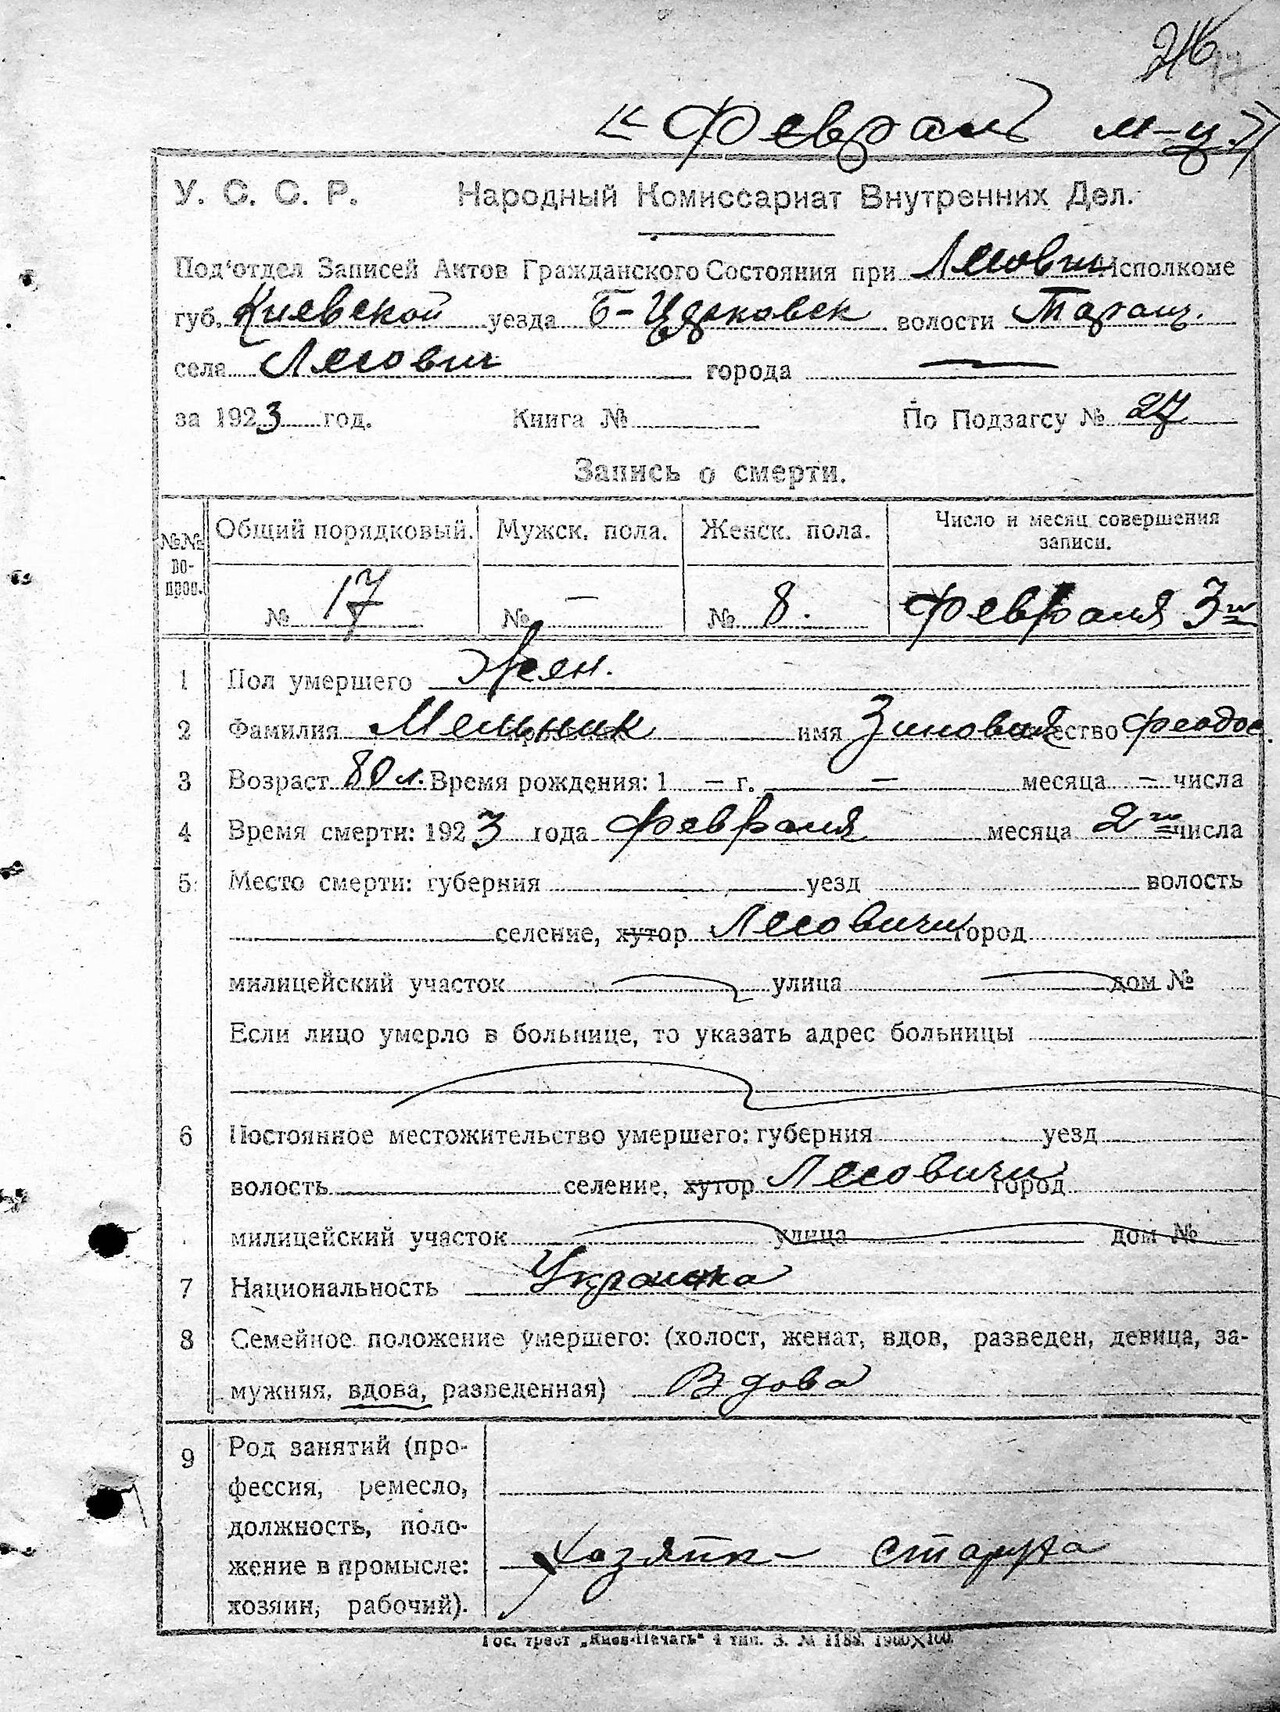 « Февраль м-ц »
У. С. С. Р. Народный Комиссариат Внутренних Дел.
Под'отдел Записей Актов Гражданского Состояния при Лесович Исполкоме
губ. Киевской уезда Б-Церковск волости Таращ.
села Лесович города —
за 1923 год. Книга № По Подзагсу № 27
Запись о смерти.
№№ вопрос. Общий порядковый. Мужск. пола. Женск. пола. Число и месяц совершения записи.
№ 17 № — № 8. Февраля 3го
1 Пол умершего Жен.
2 Фамилия Мельник имя Зиновия отчество Феодос.
3 Возраст 80 л. Время рождения: 1 — г. — месяца — числа
4 Время смерти: 1923 года февраля месяца 2го числа
5 Место смерти: губерния уезд волость
селение, хутор Лесовичи город
милицейский участок улица дом №
Если лицо умерло в больнице, то указать адрес больницы
6 Постоянное местожительство умершего: губерния уезд
волость селение, хутор Лесовичи город
милицейский участок улица дом №
7 Национальность Украинка
8 Семейное положение умершего: (холост, женат, вдов, разведен, девица, за-
мужняя, вдова, разведенная) Вдова
9 Род занятий (про-
фессия, ремесло,
должность, поло-
жение в промысле: старуха
хозяин, рабочий).
Гос. трест „Киев-Печать" 4 тип. З. № 1188. 1900×100.